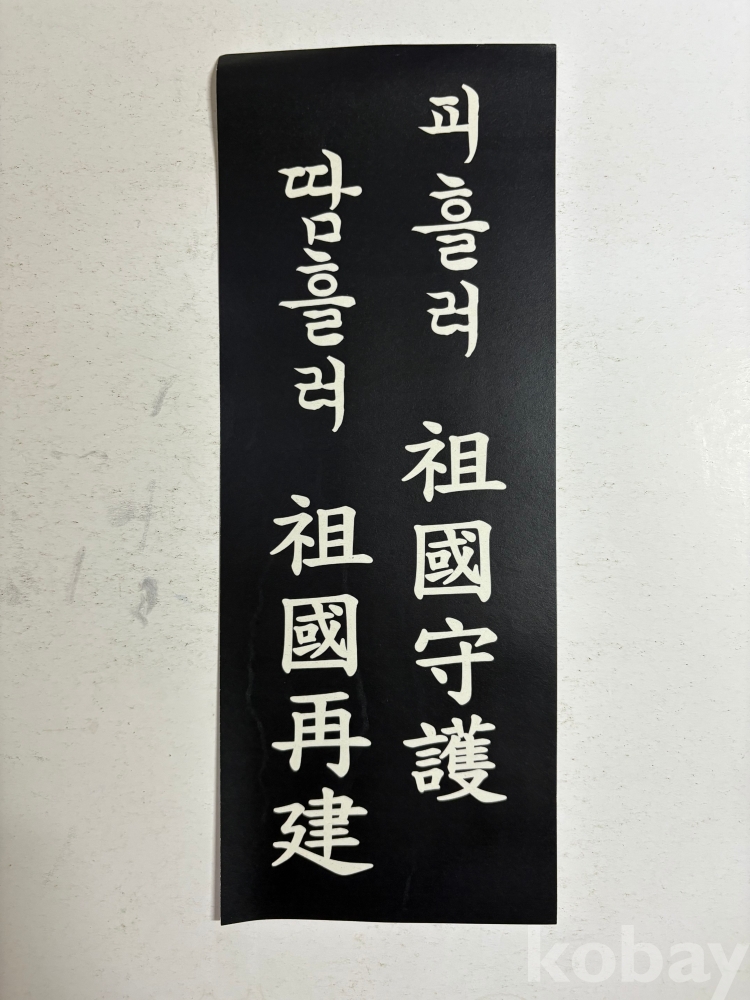 피흘려 祖國守護
땀흘려 祖國再建
kobay